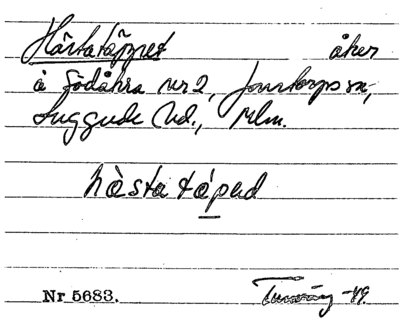 Hästatäppet åker
å Födåkra nr 2, Jonstorps sn,
Luggude hd., Mlm.
hàsta tápad
Nr 5683. -49.